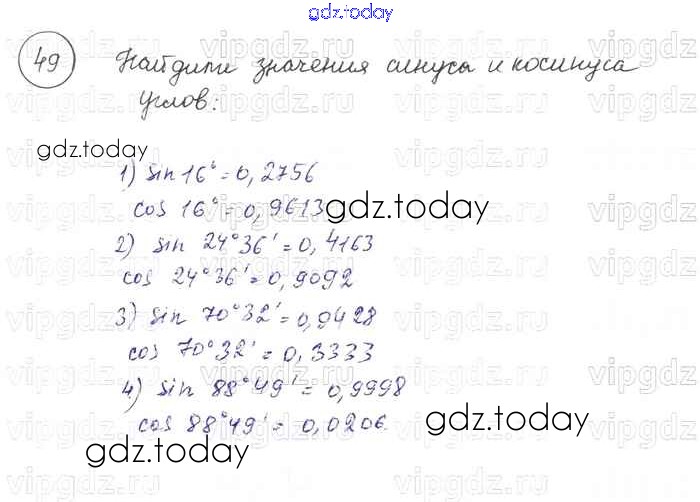 gdz.today
49 Найдите значения синуса и косинуса
углов:
gdz.today
1) sin 16° = 0,2756
cos 16° = 0,9613
gdz.today
2) sin 24°36' = 0,4163
cos 24°36' = 0,9092
3) sin 70°32' = 0,9428
cos 70°32' = 0,3333
4) sin 88°49' = 0,9998
cos 88°49' = 0,0206
gdz.today
gdz.today